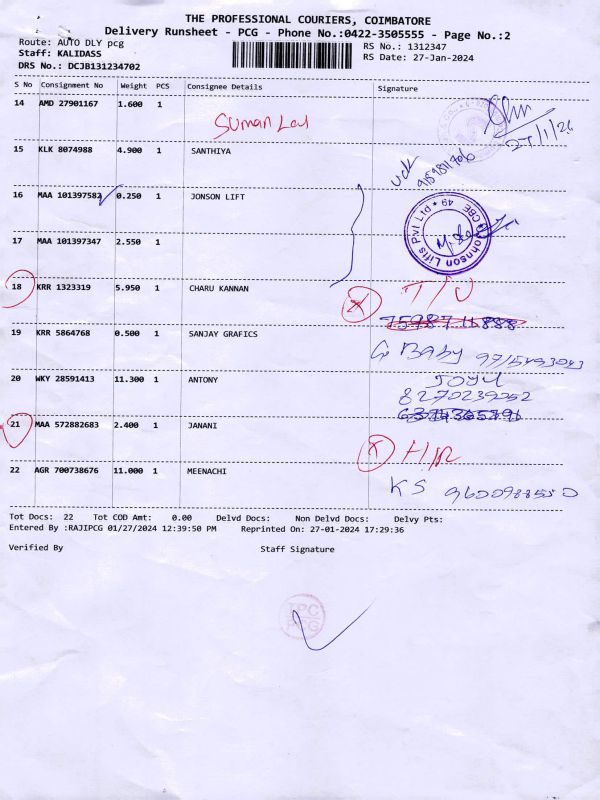 THE PROFESSIONAL COURIERS, COIMBATORE
Delivery Runsheet - PCG - Phone No.:0422-3505555 - Page No.:2
Route: AUTO DLY pcg
RS No.: 1312347
Staff: KALIDASS
RS Date: 27-Jan-2024
DRS No.: DCJB131234702
S No Consignment No Weight PCS Consignee Details Signature
14 AMD 27901167 1.600 1
Suman Lal
15 KLK 8074988 4.900 1 SANTHIYA
16 MAA 101397582 0.250 1 JONSON LIFT
Johnson Lifts Pvt Ltd * 49 * CBE
17 MAA 101397347 2.550 1
18 KRR 1323319 5.950 1 CHARU KANNAN
19 KRR 5864768 0.500 1 SANJAY GRAFICS
G Baby
20 WKY 28591413 11.300 1 ANTONY
8270239052
21 MAA 572882683 2.400 1 JANANI
22 AGR 700738676 11.000 1 MEENACHI
KS
Tot Docs: 22 Tot COD Amt: 0.00 Delvd Docs: Non Delvd Docs: Delvy Pts:
Entered By :RAJIPCG 01/27/2024 12:39:50 PM Reprinted On: 27-01-2024 17:29:36
Verified By Staff Signature